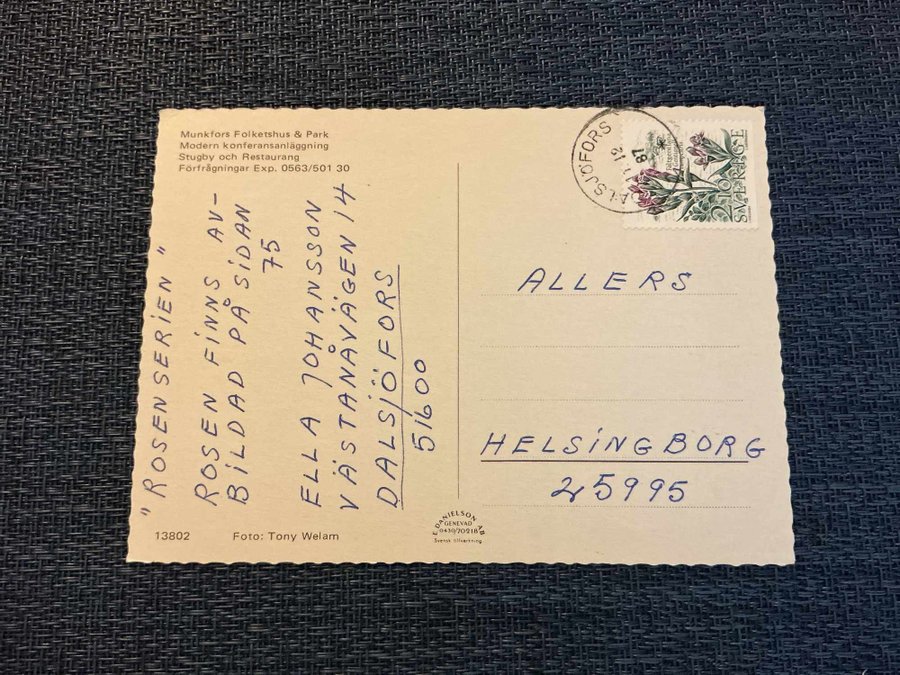 Munkfors Folketshus & Park
Modern konferensanläggning
Stugby och Restaurang
Förfrågningar Exp. 0563/501 30
"ROSENSERIEN"
ROSEN FINNS AV-
BILDAD PÅ SIDAN
75
ELLA JOHANSSON
VÄSTANÅVÄGEN 14
DALSJÖFORS
51600
DALSJÖFORS
12
87
SVERIGE
ALLERS
HELSINGBORG
25995
13802
Foto: Tony Welam
E. DANIELSON AB
GENEVAD
0430/70918
Svensk tillverkning